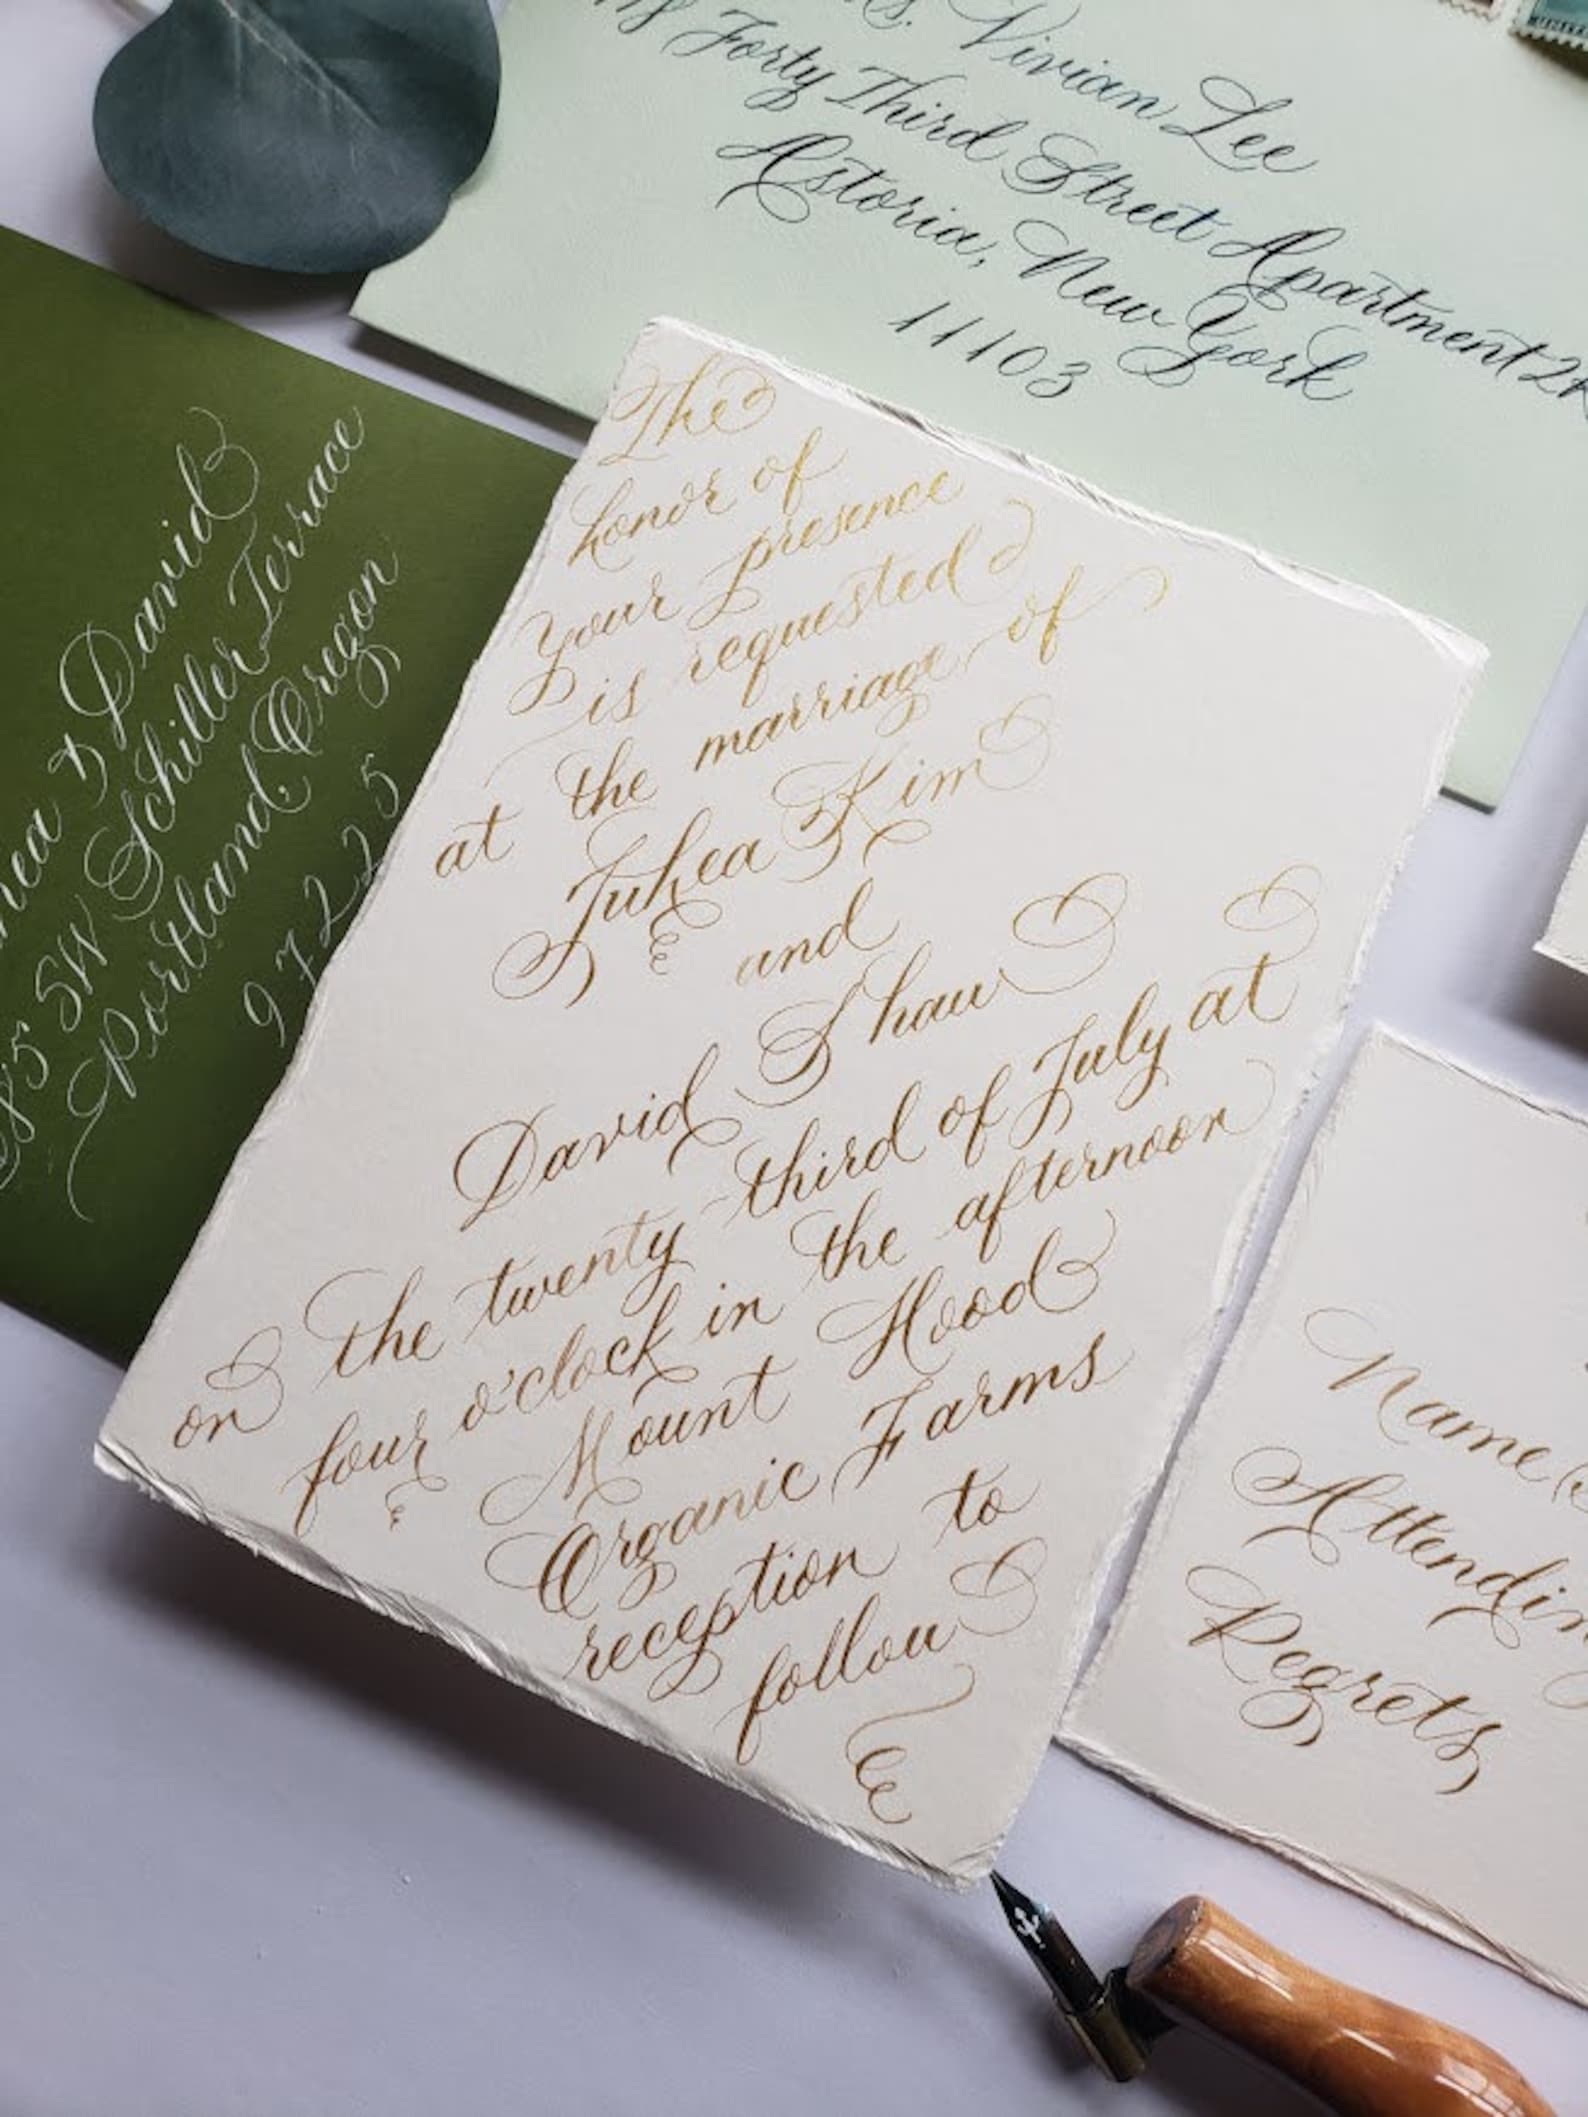 Vivian Lee
Forty Third Street Apartment
Astoria, New York
11103
& David
SW Schiller Terrace
Portland, Oregon
97225
The
honor of
your presence
is requested
at the marriage of
Juhea Kim
and
David Shaw
on the twenty-third of July at
four o'clock in the afternoon
Mount Hood
Organic Farms
reception to
follow
Name
Attending
Regrets